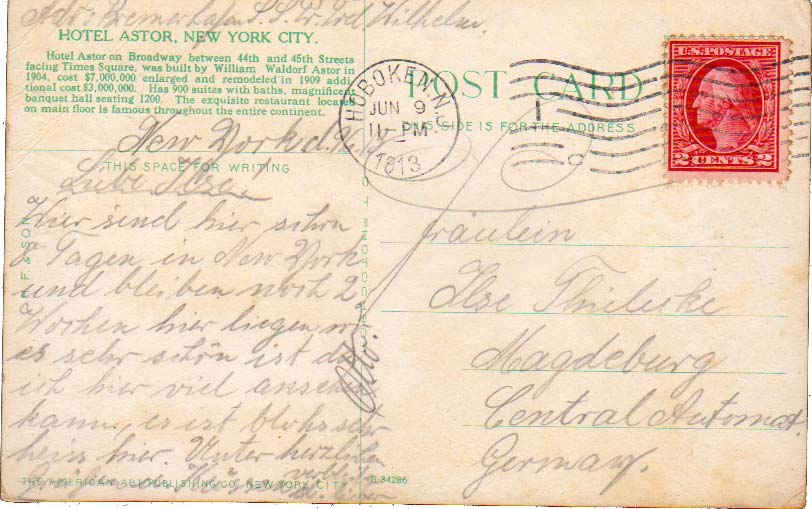 Adr: Bremerhafen S.S. Pr. Fred. Wilhelm.
HOTEL ASTOR, NEW YORK CITY.
Hotel Astor on Broadway between 44th and 45th Streets
facing Times Square, was built by William Waldorf Astor in
1904, cost $7,000,000 enlarged and remodeled in 1909 addi
tional cost $3,000,000. Has 900 suites with baths, magnificent
banquet hall seating 1200. The exquisite restaurant located
on main floor is famous throughout the entire continent.
POST CARD
THIS SIDE IS FOR THE ADDRESS
HOBOKEN, N.J.
JUN 9
11-PM
1913
U.S. POSTAGE
2 CENTS 2
New York d.
THIS SPACE FOR WRITING
Liebe Ilse!
Wir sind hier schon
Tagen in New York
und bleiben noch 2
Wochen hier liegen
es sehr schön ist
ich hier viel ansehen
kann, es ist blohs sehr
heiss hier. Unter herzlichen
Otto.
Fräulein
Ilse Thielecke
Magdeburg
Central Automat
Germany.
THE AMERICAN ART PUBLISHING CO. NEW YORK CITY
R-34286